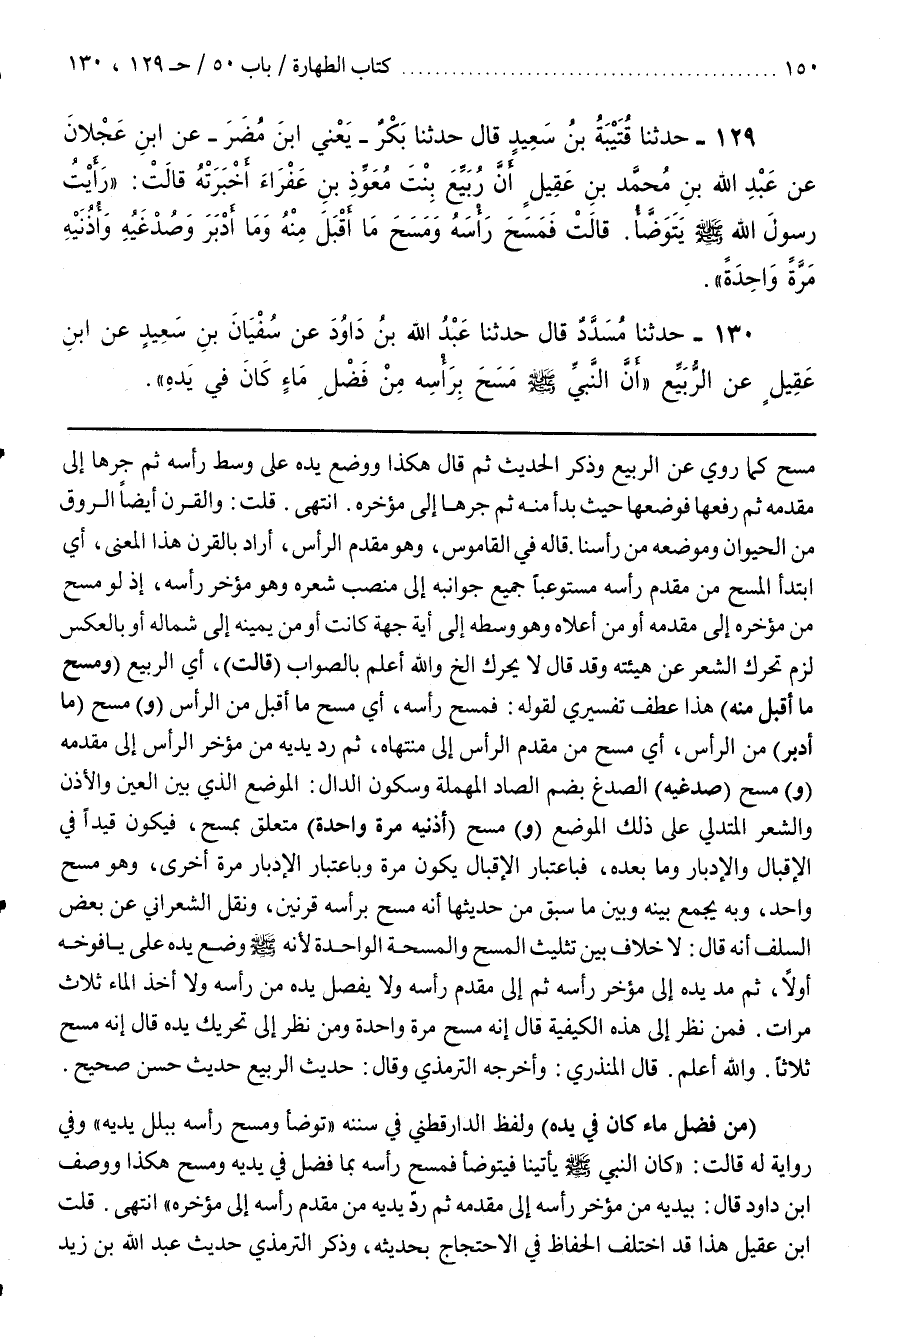 ١٥٠ ........................................ كتاب الطهارة / باب ٥٠ / حـ ١٢٩ ، ١٣٠
١٢٩ ـ حدثنا قُتَيْبَةُ بنُ سَعِيدٍ قال حدثنا بَكْرٌ ـ يَعْني ابنَ مُضَرَ ـ عن ابنِ عَجْلانَ
عن عَبْدِ الله بنِ مُحمَّد بنِ عَقِيلٍ أَنَّ رُبَيِّعَ بِنْتَ مُعَوِّذِ بنِ عَفْرَاءَ أَخْبَرَتْهُ قالَتْ: «رَأَيْتُ
رسولَ الله ﷺ يَتَوَضَّأُ. قالَتْ فَمَسَحَ رَأْسَهُ وَمَسَحَ مَا أَقْبَلَ مِنْهُ وَمَا أَدْبَرَ وَصُدْغَيْهِ وَأُذُنَيْهِ
مَرَّةً وَاحِدَةً».
١٣٠ ـ حدثنا مُسَدَّدٌ قال حدثنا عَبْدُ الله بنُ دَاوُدَ عن سُفْيَانَ بنِ سَعِيدٍ عن ابنِ
عَقِيلٍ عن الرُّبَيِّع «أَنَّ النَّبيَّ ﷺ مَسَحَ بِرَأْسِه مِنْ فَضْلِ مَاءٍ كَانَ في يَدِهِ».
مسح كما روي عن الربيع وذكر الحديث ثم قال هكذا ووضع يده على وسط رأسه ثم جرها إلى
مقدمه ثم رفعها فوضعها حيث بدأ منه ثم جرها إلى مؤخره. انتهى. قلت: والقرن أيضاً الروق
من الحيوان وموضعه من رأسنا. قاله في القاموس، وهو مقدم الرأس، أراد بالقرن هذا المعنى، أي
ابتدأ المسح من مقدم رأسه مستوعباً جميع جوانبه إلى منصب شعره وهو مؤخر رأسه، إذ لو مسح
من مؤخره إلى مقدمه أو من أعلاه وهو وسطه إلى أية جهة كانت أو من يمينه إلى شماله أو بالعكس
لزم تحرك الشعر عن هيئته وقد قال لا يحرك الخ والله أعلم بالصواب (قالت)، أي الربيع (ومسح
ما أقبل منه) هذا عطف تفسيري لقوله: فمسح رأسه، أي مسح ما أقبل من الرأس (و) مسح (ما
أدبر) من الرأس، أي مسح من مقدم الرأس إلى منتهاه، ثم رد يديه من مؤخر الرأس إلى مقدمه
(و) مسح (صدغيه) الصدغ بضم الصاد المهملة وسكون الدال: الموضع الذي بين العين والأذن
والشعر المتدلي على ذلك الموضع (و) مسح (أذنيه مرة واحدة) متعلق بمسح، فيكون قيداً في
الإقبال والإدبار وما بعده، فباعتبار الإقبال يكون مرة وباعتبار الإدبار مرة أخرى، وهو مسح
واحد، وبه يجمع بينه وبين ما سبق من حديثها أنه مسح برأسه قرنين، ونقل الشعراني عن بعض
السلف أنه قال: لا خلاف بين تثليث المسح والمسحة الواحدة لأنه ﷺ وضع يده على يافوخه
أولاً، ثم مد يده إلى مؤخر رأسه ثم إلى مقدم رأسه ولا يفصل يده من رأسه ولا أخذ الماء ثلاث
مرات. فمن نظر إلى هذه الكيفية قال إنه مسح مرة واحدة ومن نظر إلى تحريك يده قال إنه مسح
ثلاثاً. والله أعلم. قال المنذري: وأخرجه الترمذي وقال: حديث الربيع حديث حسن صحيح.
(من فضل ماء كان في يده) ولفظ الدارقطني في سننه «توضأ ومسح رأسه ببلل يديه» وفي
رواية له قالت: «كان النبي ﷺ يأتينا فيتوضأ فمسح رأسه بما فضل في يديه ومسح هكذا ووصف
ابن داود قال: بيديه من مؤخر رأسه إلى مقدمه ثم ردّ يديه من مقدم رأسه إلى مؤخره» انتهى. قلت
ابن عقيل هذا قد اختلف الحفاظ في الاحتجاج بحديثه، وذكر الترمذي حديث عبد الله بن زيد